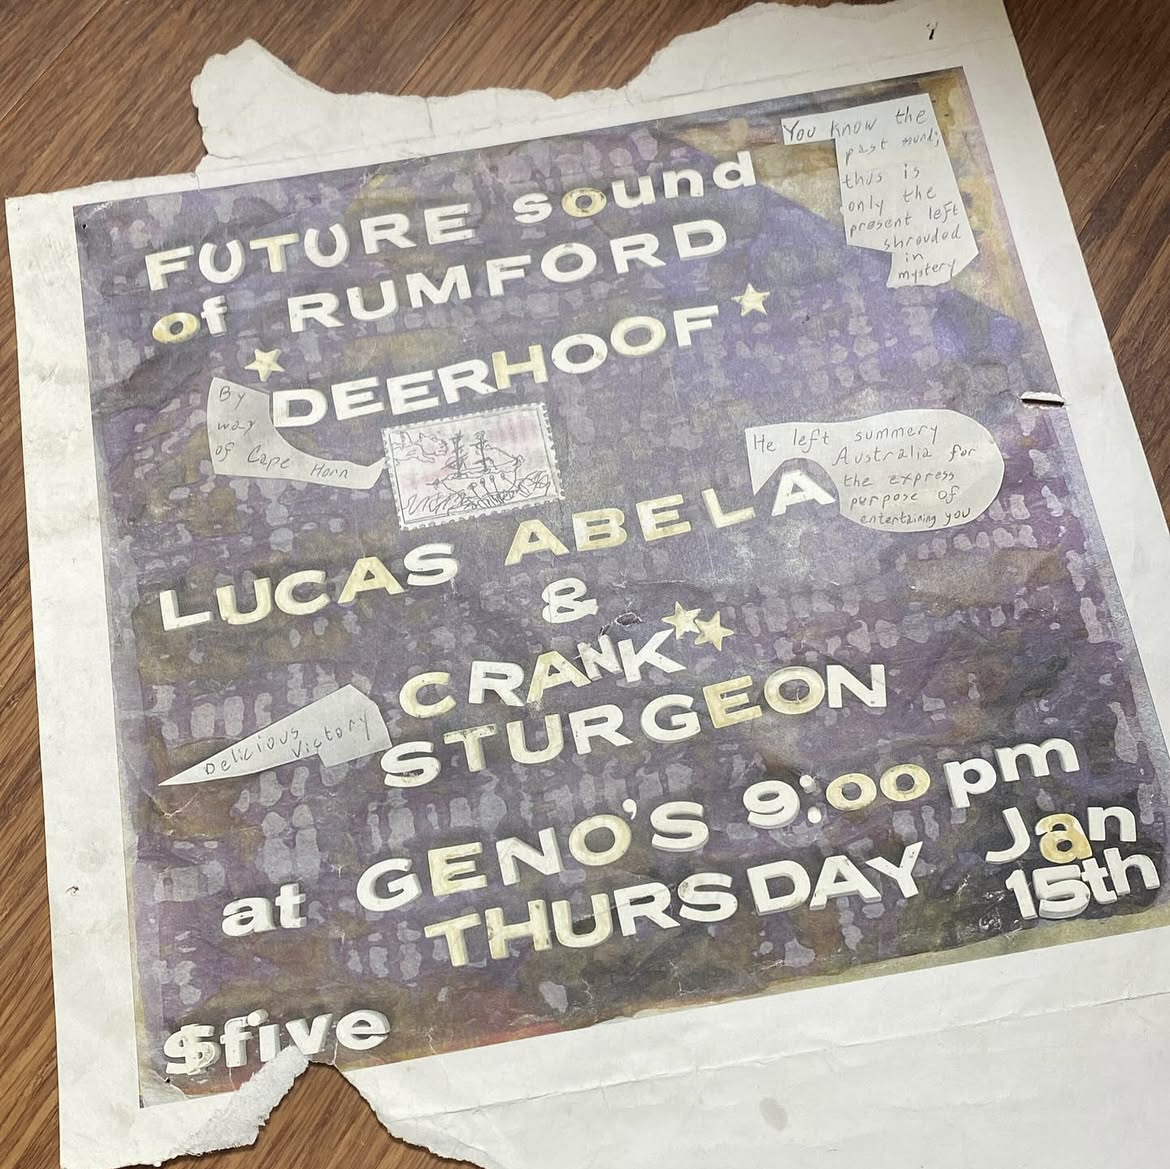 You know the
past sound;
thus is
only the
present left
shrouded
in
mystery
FUTURE sound
of RUMFORD
DEERHOOF
By
way
of Cape Horn
He left summery
Australia for
the express
purpose of
entertaining you
LUCAS ABELA
&
CRANK
STURGEON
Delicious
Victory
at GENO'S 9:00 pm
THURSDAY Jan
15th
$five